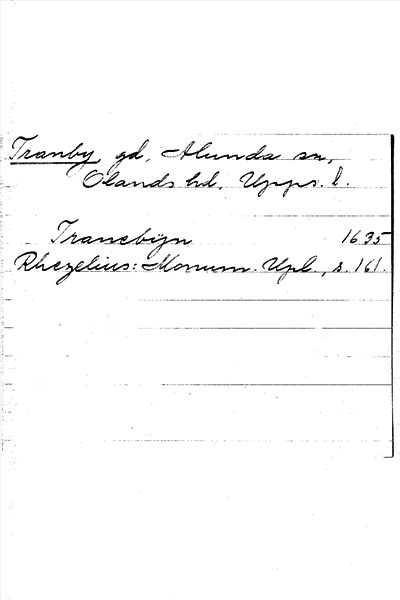 Tranby gd, Alunda sn,
Olands hd. Upps. l.
Tranebÿn 1635
Rhezelius: Monum. Upl., s. 161.